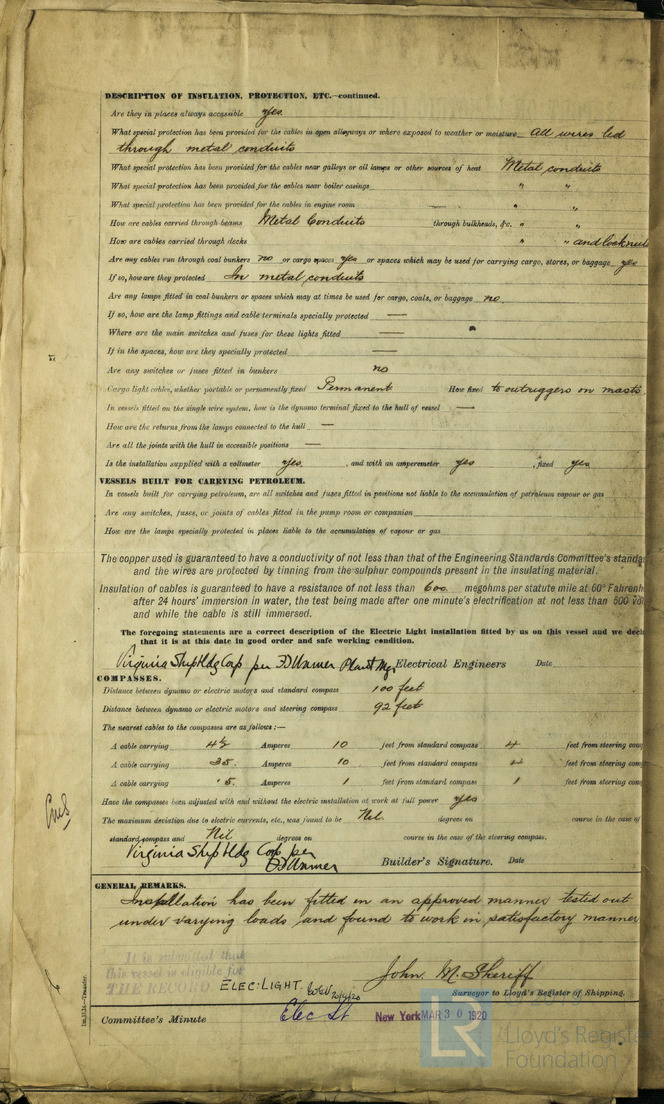 DESCRIPTION OF INSULATION, PROTECTION, ETC.—continued.
Are they in places always accessible yes.
What special protection has been provided for the cables in open alleyways or where exposed to weather or moisture All wires led
through metal conduits
What special protection has been provided for the cables near galleys or oil lamps or other sources of heat Metal conduits
What special protection has been provided for the cables near boiler casings " "
What special protection has been provided for the cables in engine room — " "
How are cables carried through beams Metal Conduits through bulkheads, &c. " "
How are cables carried through decks " " and locknuts
Are any cables run through coal bunkers no or cargo spaces yes or spaces which may be used for carrying cargo, stores, or baggage yes
If so, how are they protected In metal conduits
Are any lamps fitted in coal bunkers or spaces which may at times be used for cargo, coals, or baggage no.
If so, how are the lamp fittings and cable terminals specially protected —
Where are the main switches and fuses for these lights fitted —
If in the spaces, how are they specially protected —
Are any switches or fuses fitted in bunkers no
Cargo light cables, whether portable or permanently fixed Permanent How fixed to outriggers on masts
In vessels fitted on the single wire system, how is the dynamo terminal fixed to the hull of vessel —
How are the returns from the lamps connected to the hull —
Are all the joints with the hull in accessible positions —
Is the installation supplied with a voltmeter yes. , and with an amperemeter yes , fixed yes
VESSELS BUILT FOR CARRYING PETROLEUM.
In vessels built for carrying petroleum, are all switches and fuses fitted in positions not liable to the accumulation of petroleum vapour or gas
Are any switches, fuses, or joints of cables fitted in the pump room or companion
How are the lamps specially protected in places liable to the accumulation of vapour or gas
The copper used is guaranteed to have a conductivity of not less than that of the Engineering Standards Committee's standa
and the wires are protected by tinning from the sulphur compounds present in the insulating material.
Insulation of cables is guaranteed to have a resistance of not less than 600 megohms per statute mile at 60° Fahrenh
after 24 hours' immersion in water, the test being made after one minute's electrification at not less than 500 vol
and while the cable is still immersed.
The foregoing statements are a correct description of the Electric Light installation fitted by us on this vessel and we decl
that it is at this date in good order and safe working condition.
Virginia Shipbldg Corp per Plant Mgr Electrical Engineers Date
COMPASSES.
Distance between dynamo or electric motors and standard compass 100 feet
Distance between dynamo or electric motors and steering compass 92 feet
The nearest cables to the compasses are as follows:—
A cable carrying 4½ Amperes 10 feet from standard compass 4 feet from steering com
A cable carrying 35. Amperes 10 feet from standard compass feet from steering com
A cable carrying .5. Amperes 1 feet from standard compass 1 feet from steering com
Have the compasses been adjusted with and without the electric installation at work at full power yes
The maximum deviation due to electric currents, etc., was found to be Nil. degrees on course in the case of
standard compass and Nil degrees on course in the case of the steering compass.
Virginia Shipbldg Corp per
Builder's Signature. Date
GENERAL REMARKS.
Installation has been fitted in an approved manner tested out
under varying loads and found to work in satisfactory manner
It is submitted that
this vessel is eligible for
THE RECORD ELEC: LIGHT.
John M. Sheriff
Surveyor to Lloyd's Register of Shipping.
Committee's Minute Elec Lt New York MAR 30 1920
LR
Lloyd's Registe
Foundation